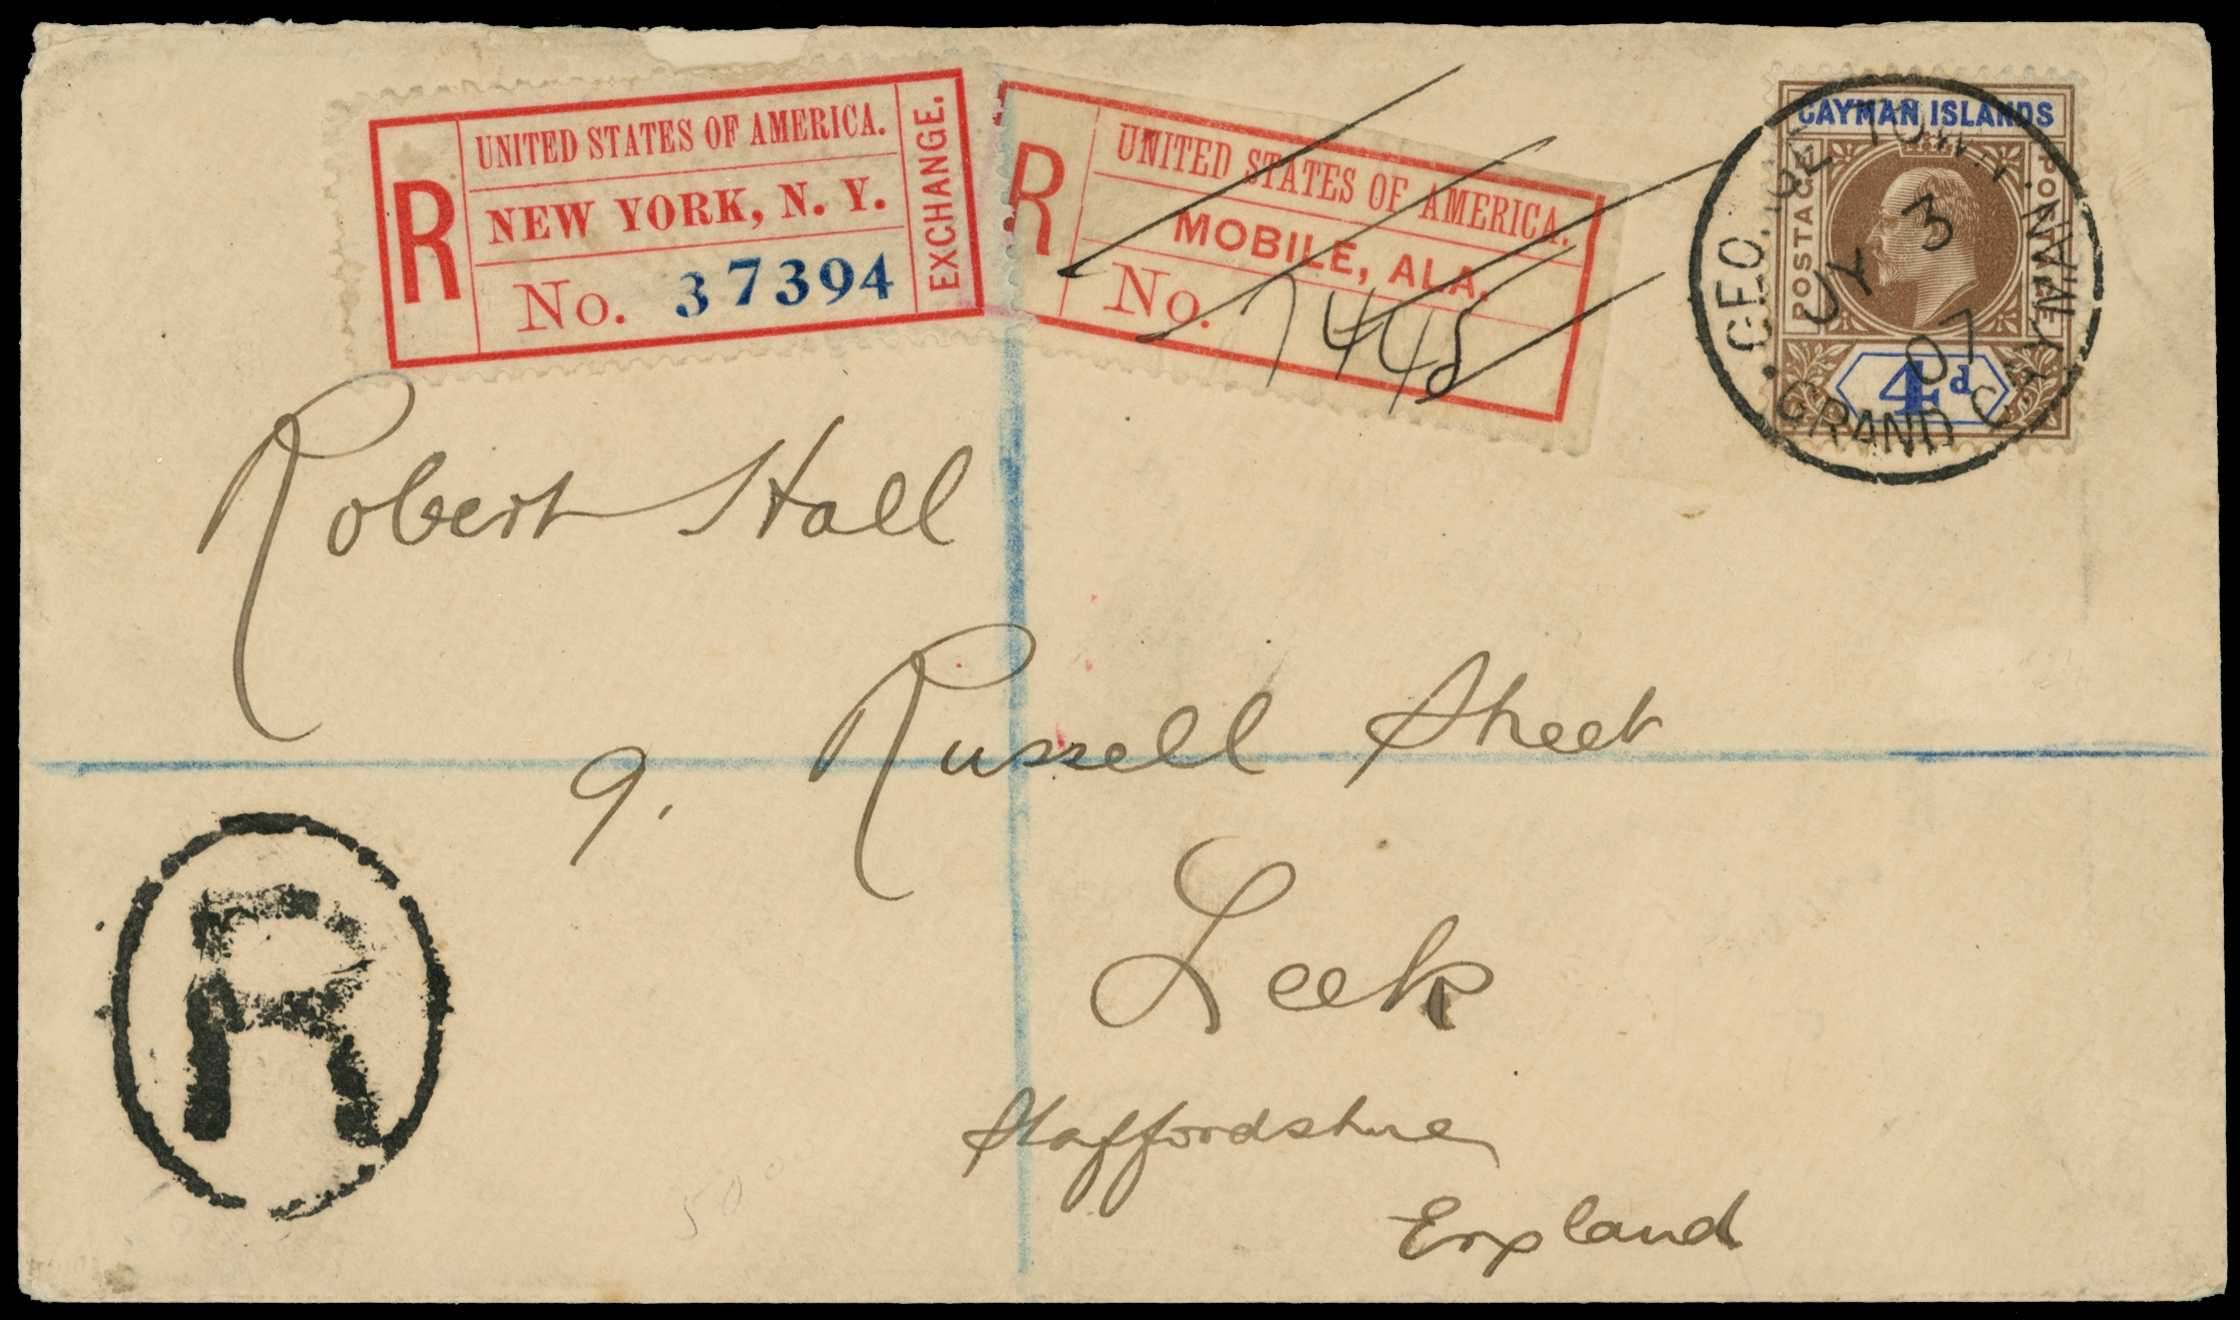 R
UNITED STATES OF AMERICA.
NEW YORK, N. Y.
No. 37394
EXCHANGE.
R
UNITED STATES OF AMERICA.
MOBILE, ALA.
No. 7445
CAYMAN ISLANDS
POSTAGE
POSTAGE
4d
GEORGETOWN. GRAND CAYMAN.
JY 3
07
Robert Hall
9. Russell Street
Leek
Staffordshire
England
R